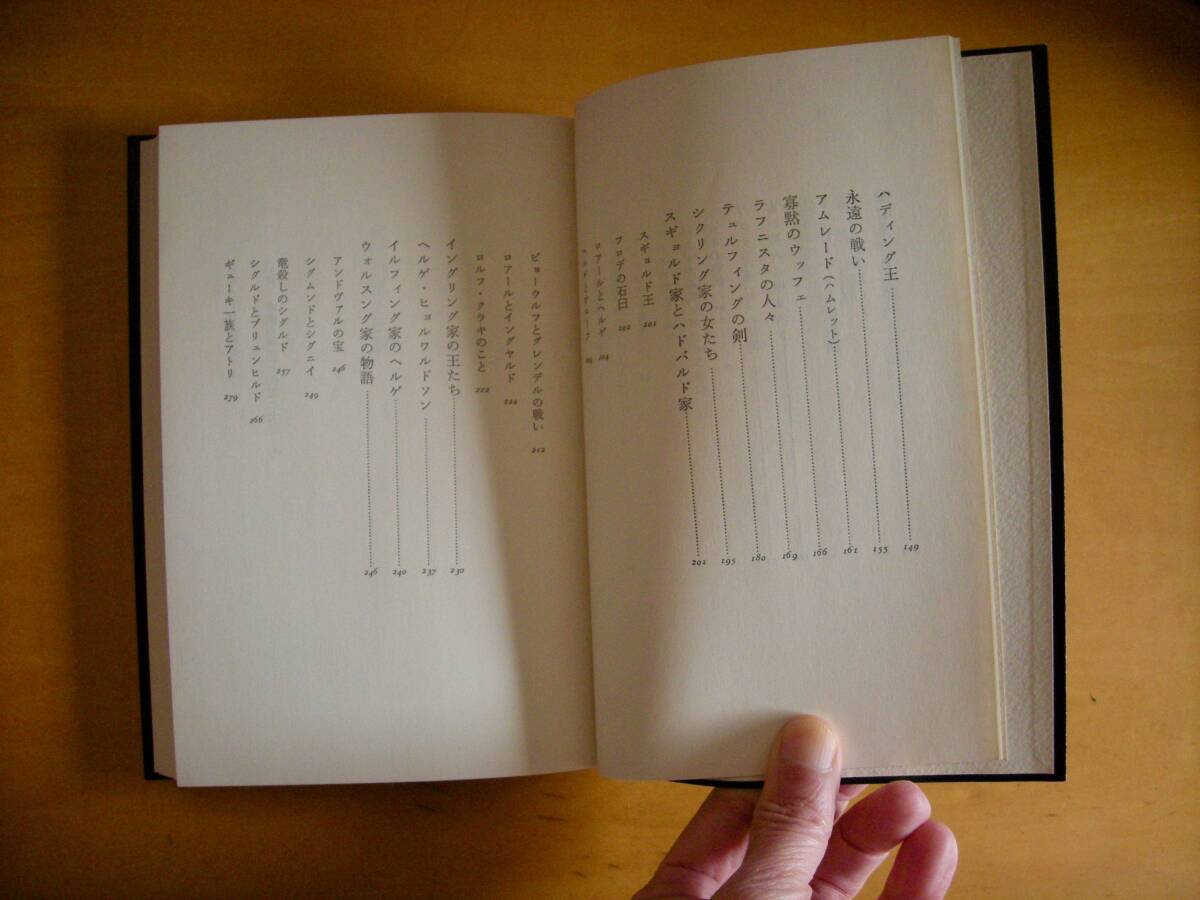 ハディング王 149
永遠の戦い 155
アムレード(ハムレット) 161
寡黙のウッフェ 166
ラフニスタの人々 169
テュルフィングの剣 180
シクリング家の女たち 195
スギョルド家とハドバルド家 201
スギョルド王 201
フロデの石臼 202
ロアールとヘルゲ 204
ビョーウルフとグレンデルの戦い 212
ロアールとイングヤルド
ロルフ・クラキのこと 222
イングリング家の王たち 230
ヘルゲ・ヒョルワルドソン 237
イルフィング家のヘルゲ 240
ウォルスング家の物語 246
アンドヴァルの宝 246
シグムンドとシグニイ 249
竜殺しのシグルド 257
シグルドとブリュンヒルド 266
ギューキ一族とアトリ 279